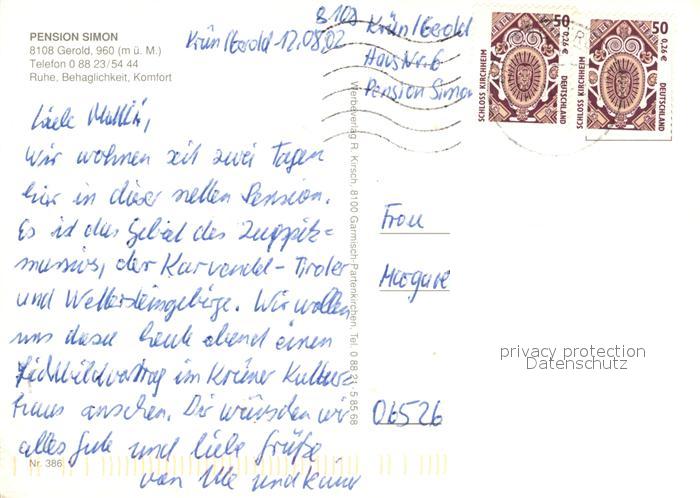 PENSION SIMON
8108 Gerold, 960 (m ü. M.)
Telefon 0 88 23/54 44
Ruhe, Behaglichkeit, Komfort
Krün/Gerold 12.08.02
8108 Krün/Gerold
Haus Nr. 6
Pension Simon
50 0,26 €
SCHLOSS KIRCHHEIM
DEUTSCHLAND
50 0,26 €
SCHLOSS KIRCHHEIM
DEUTSCHLAND
Liebe Mutti,
Wir wohnen seit zwei Tagen
hier in dieser netten Pension.
Es ist das Gebiet des Zugspitz=
massivs, der Karwendel-Tiroler
und Wettersteingebirge. Wir wollen
uns dazu heute abend einen
Lichtbildvortrag im Krüner Kultur=
haus ansehen. Dir wünschen wir
alles Gute und liebe Grüße
von Ute und
Nr. 386
Werbeverlag R. Kirsch, 8100 Garmisch-Partenkirchen, Tel. 0 88 21-5 85 68
Frau
Margare
06526
privacy protection
Datenschutz